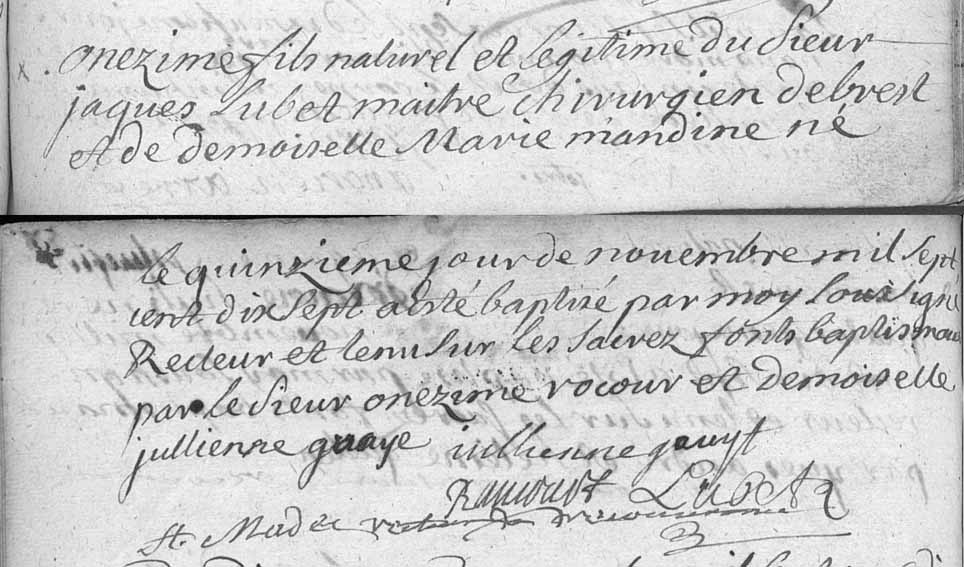 onezime fils naturel et legitime du sieur
jaques Lubet maitre chirurgien de brest
et de demoiselle Marie mandine né
le quinzieme jour de novembre mil sept
cent dix sept a esté baptizé par moy sousigné
Recteur et tenu sur les sacrez fonts baptismau
par le sieur onezime rocour et demoiselle
jullienne guaye iullienne gauyt
Lubet